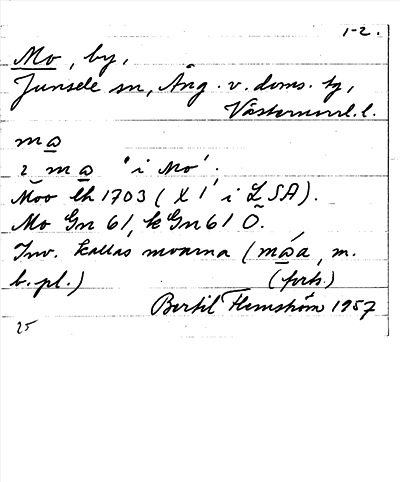 1-2.
Mo, by,
Junsele sn, Ång. v. doms. tg,
Västernorrl. l.
mɷ
ĭ mɷ 'i Mo'.
Moo lh 1703 (X 1 i LSA).
Mo Gn 61, k Gn 61 Ö.
Inv. kallas moarna (mɷ́a, m.
b. pl.) (forts.)
Bertil Flemström 1957
25